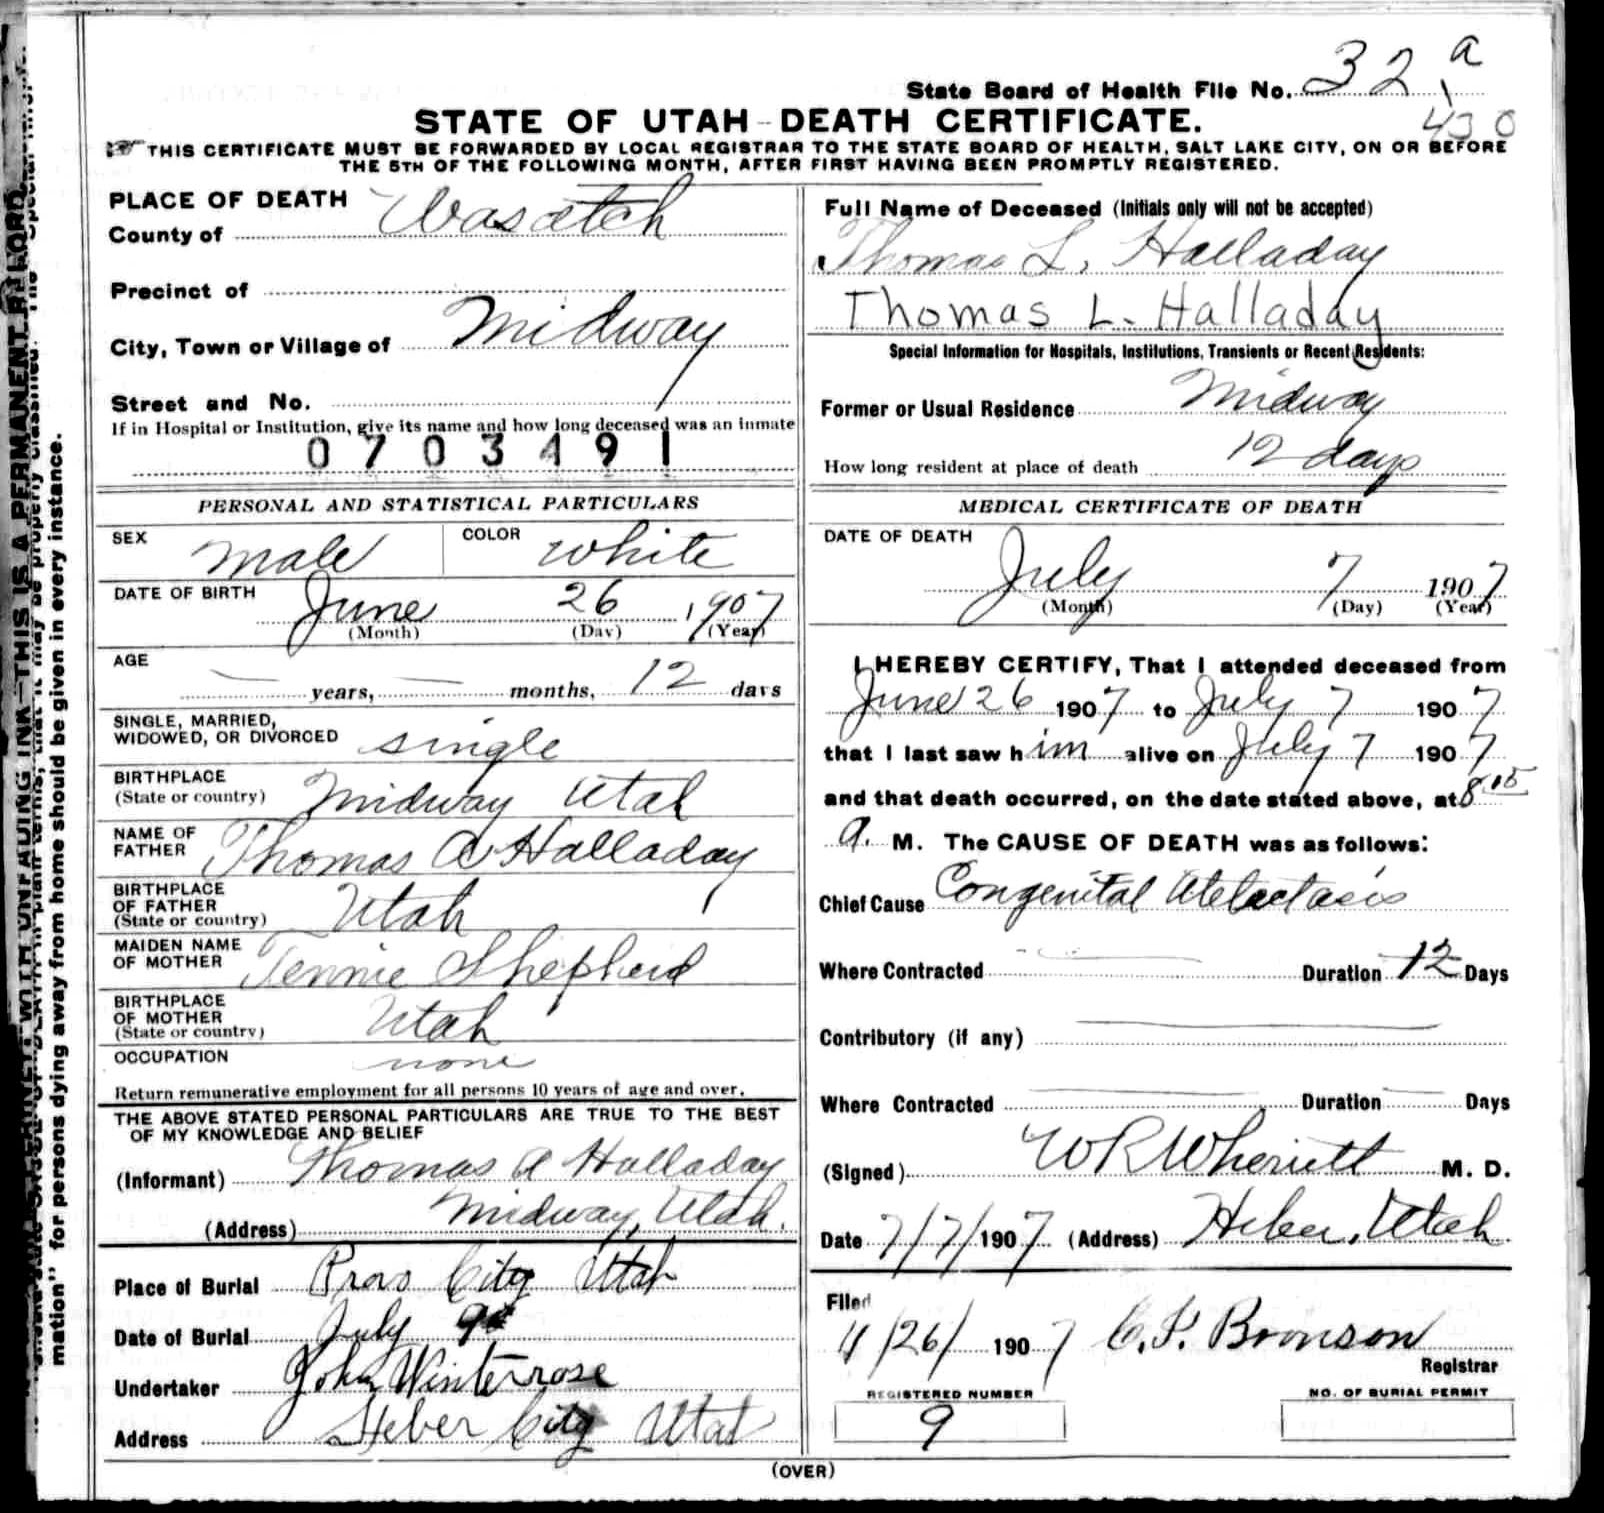 State Board of Health File No. 32 a
430
STATE OF UTAH - DEATH CERTIFICATE.
THIS CERTIFICATE MUST BE FORWARDED BY LOCAL REGISTRAR TO THE STATE BOARD OF HEALTH, SALT LAKE CITY, ON OR BEFORE
THE 5TH OF THE FOLLOWING MONTH, AFTER FIRST HAVING BEEN PROMPTLY REGISTERED.
PLACE OF DEATH
County of Wasatch
Precinct of
City, Town or Village of Midway
Street and No.
If in Hospital or Institution, give its name and how long deceased was an inmate
0703491
PERSONAL AND STATISTICAL PARTICULARS
SEX Male COLOR White
DATE OF BIRTH June 26 1907
(Month) (Day) (Year)
AGE — years, — months, 12 days
SINGLE, MARRIED,
WIDOWED, OR DIVORCED single
BIRTHPLACE
(State or country) Midway Utah
NAME OF
FATHER Thomas A Halladay
BIRTHPLACE
OF FATHER
(State or country) Utah
MAIDEN NAME
OF MOTHER Tennie Shepherd
BIRTHPLACE
OF MOTHER
(State or country) Utah
OCCUPATION none
Return remunerative employment for all persons 10 years of age and over.
THE ABOVE STATED PERSONAL PARTICULARS ARE TRUE TO THE BEST
OF MY KNOWLEDGE AND BELIEF
(Informant) Thomas A Halladay
(Address) Midway, Utah.
Place of Burial Provo City Utah
Date of Burial July 9
Undertaker John Winterrose
Address Heber City Utah
Full Name of Deceased (Initials only will not be accepted)
Thomas L. Halladay
Thomas L. Halladay
Special Information for Hospitals, Institutions, Transients or Recent Residents:
Former or Usual Residence Midway
How long resident at place of death 12 days
MEDICAL CERTIFICATE OF DEATH
DATE OF DEATH
July 7 1907
(Month) (Day) (Year)
I HEREBY CERTIFY, That I attended deceased from
June 26 1907 to July 7 1907
that I last saw him alive on July 7 1907
and that death occurred, on the date stated above, at 8.15
a. M. The CAUSE OF DEATH was as follows:
Chief Cause Congenital Atelectasis
Where Contracted — Duration 12 Days
Contributory (if any) —
Where Contracted — Duration — Days
(Signed) W R Wherritt M. D.
Date 7/7/1907 (Address) Heber, Utah
Filed
/26/ 1907 Bronson
Registrar
REGISTERED NUMBER
9
NO. OF BURIAL PERMIT
(OVER)
THIS IS A PERMANENT RECORD.
mation" for persons dying away from home should be given in every instance.